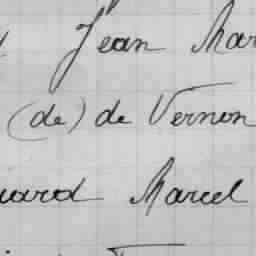 Jean Mar
(de) de Vernon
uard Marcel